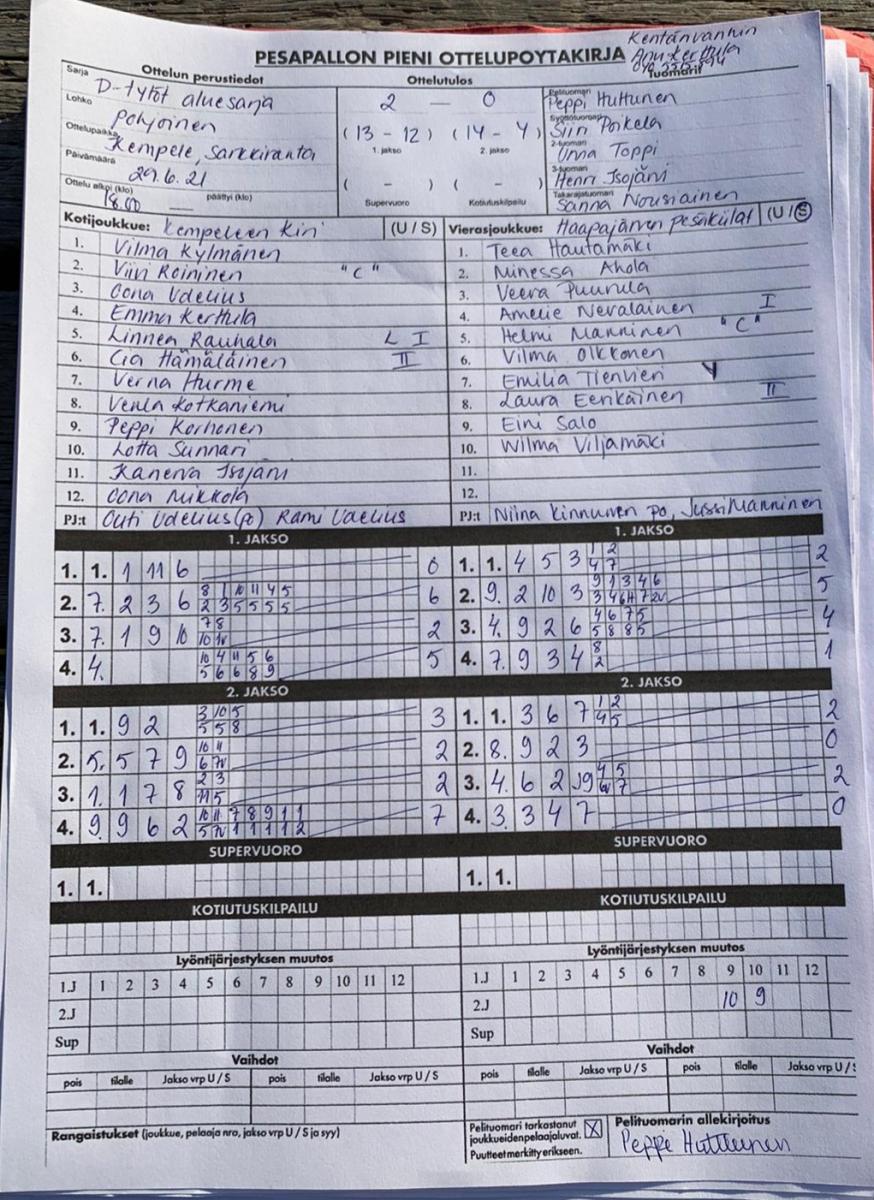 Kentänvanhin
Anu Kerttula
PESAPALLON PIENI OTTELUPOYTAKIRJA
Sarja Ottelun perustiedot Ottelutulos Tuomarit
D-tytöt aluesarja 2 - 0 Pelituomari Peppi Huttunen
Lohko Pohjoinen (13 - 12) (14 - 4) Syöttötuomari Siiri Poikela
1. jakso 2. jakso
Ottelupaikka Kempele, Sarkkiranta 2-tuomari Unna Toppi
Päivämäärä 29.6.21 ( - ) ( - ) 3-tuomari Henri Isojärvi
Ottelu alkoi (klo) 18.00 päättyi (klo) Supervuoro Kotiutuskilpailu Takarajatuomari Sanna Nousiainen
Kotijoukkue: Kempeleen Kiri (U / S) Vierasjoukkue: Haapajärven Pesäkiilat (U / S)
1. Vilma Kylmänen 1. Teea Hautamäki
2. Viivi Roininen "C" 2. Minessa Ahola
3. Oona Udelius 3. Veera Puurula
4. Emma Kerttula 4. Amelie Nevalainen I
5. Linnea Rauhala L I 5. Helmi Manninen "C"
6. Cia Hämäläinen II 6. Vilma Olkkonen
7. Verna Hurme 7. Emilia Tienvieri
8. Venla Kotkaniemi 8. Laura Eerikäinen II
9. Peppi Korhonen 9. Eini Salo
10. Lotta Sunnari 10. Wilma Viljamäki
11. Kanerva Isojärvi 11.
12. Oona Mikkola 12.
PJ:t Outi Udelius (po) Rami Udelius PJ:t Niina Kinnunen po, Jussi Manninen
1. JAKSO 1. JAKSO
1. 1. 1 11 6 0 1. 1. 4 5 3 1 2 2
4 7
2. 7. 2 3 6 8 1 10 11 4 5 6 2. 9. 2 10 3 9 1 3 4 6 5
2 3 5 5 5 5
3. 7. 1 9 10 7 8 2 3. 4. 9 2 6 4 6 7 5 4
5 8 8 5
4. 4. 10 4 11 5 6 5 4. 7. 9 3 4 8 1
5 6 6 8 9 2
2. JAKSO 2. JAKSO
1. 1. 9 2 3 10 5 3 1. 1. 3 6 7 1 2 2
5 5 8 4 5
2. 5. 5 7 9 10 11 2 2. 8. 9 2 3 0
3. 1. 1 7 8 2 3 2 3. 4. 6 2 4 5 2
11 5
4. 9. 9 6 2 10 11 7 8 9 1 1 7 4. 3. 3 4 7 0
SUPERVUORO SUPERVUORO
1. 1. 1. 1.
KOTIUTUSKILPAILU KOTIUTUSKILPAILU
Lyöntijärjestyksen muutos Lyöntijärjestyksen muutos
1.J 1 2 3 4 5 6 7 8 9 10 11 12 1.J 1 2 3 4 5 6 7 8 9 10 11 12
2.J 2.J 10 9
Sup Sup
Vaihdot Vaihdot
pois tilalle Jakso vrp U / S pois tilalle Jakso vrp U / S pois tilalle Jakso vrp U / S pois tilalle Jakso vrp U / S
Rangaistukset (joukkue, pelaaja nro, jakso vrp U / S ja syy) Pelituomari tarkastanut joukkueidenpelaajaluvat. X Pelituomarin allekirjoitus
Puutteet merkitty erikseen. Peppi Huttunen